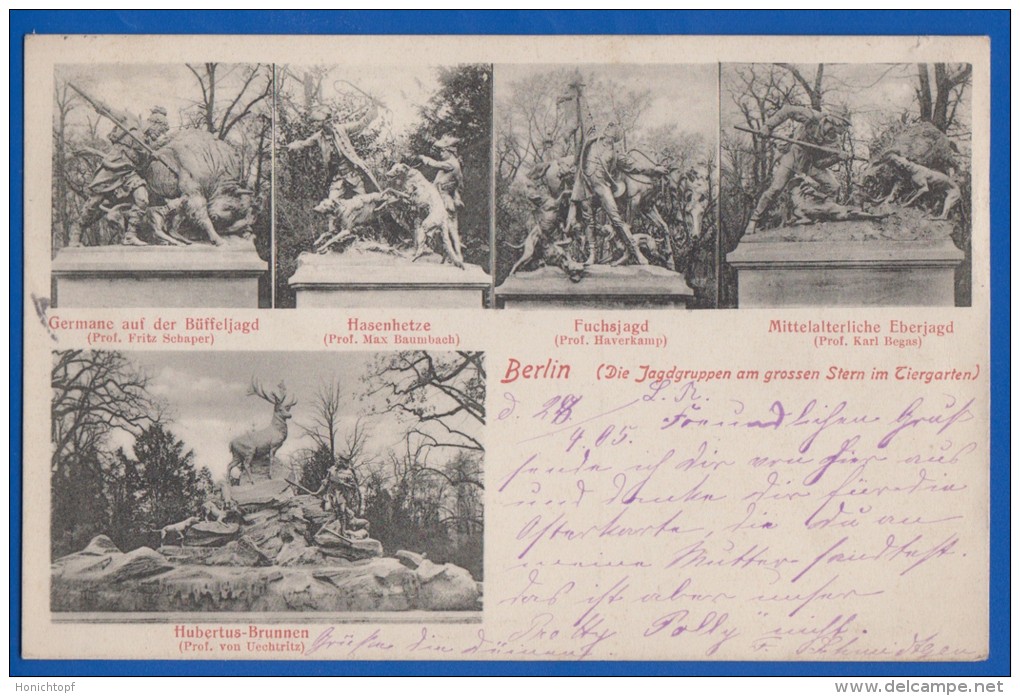 Germane auf der Büffeljagd
(Prof. Fritz Schaper)
Hasenhetze
(Prof. Max Baumbach)
Fuchsjagd
(Prof. Haverkamp)
Mittelalterliche Eberjagd
(Prof. Karl Begas)
Berlin (Die Jagdgruppen am grossen Stern im Tiergarten)
d. 28/4.05. L. R. Freundlichen Gruß
sende ich Dir von hier aus
und danke Dir für die
Osterkarte, die du an
meine Mutter sandtest.
das ist aber unser
"Polly" nicht.
Hubertus-Brunnen
(Prof. von Uechtritz)
Grüße die Deinen
Honichtopf
www.delcampe.net